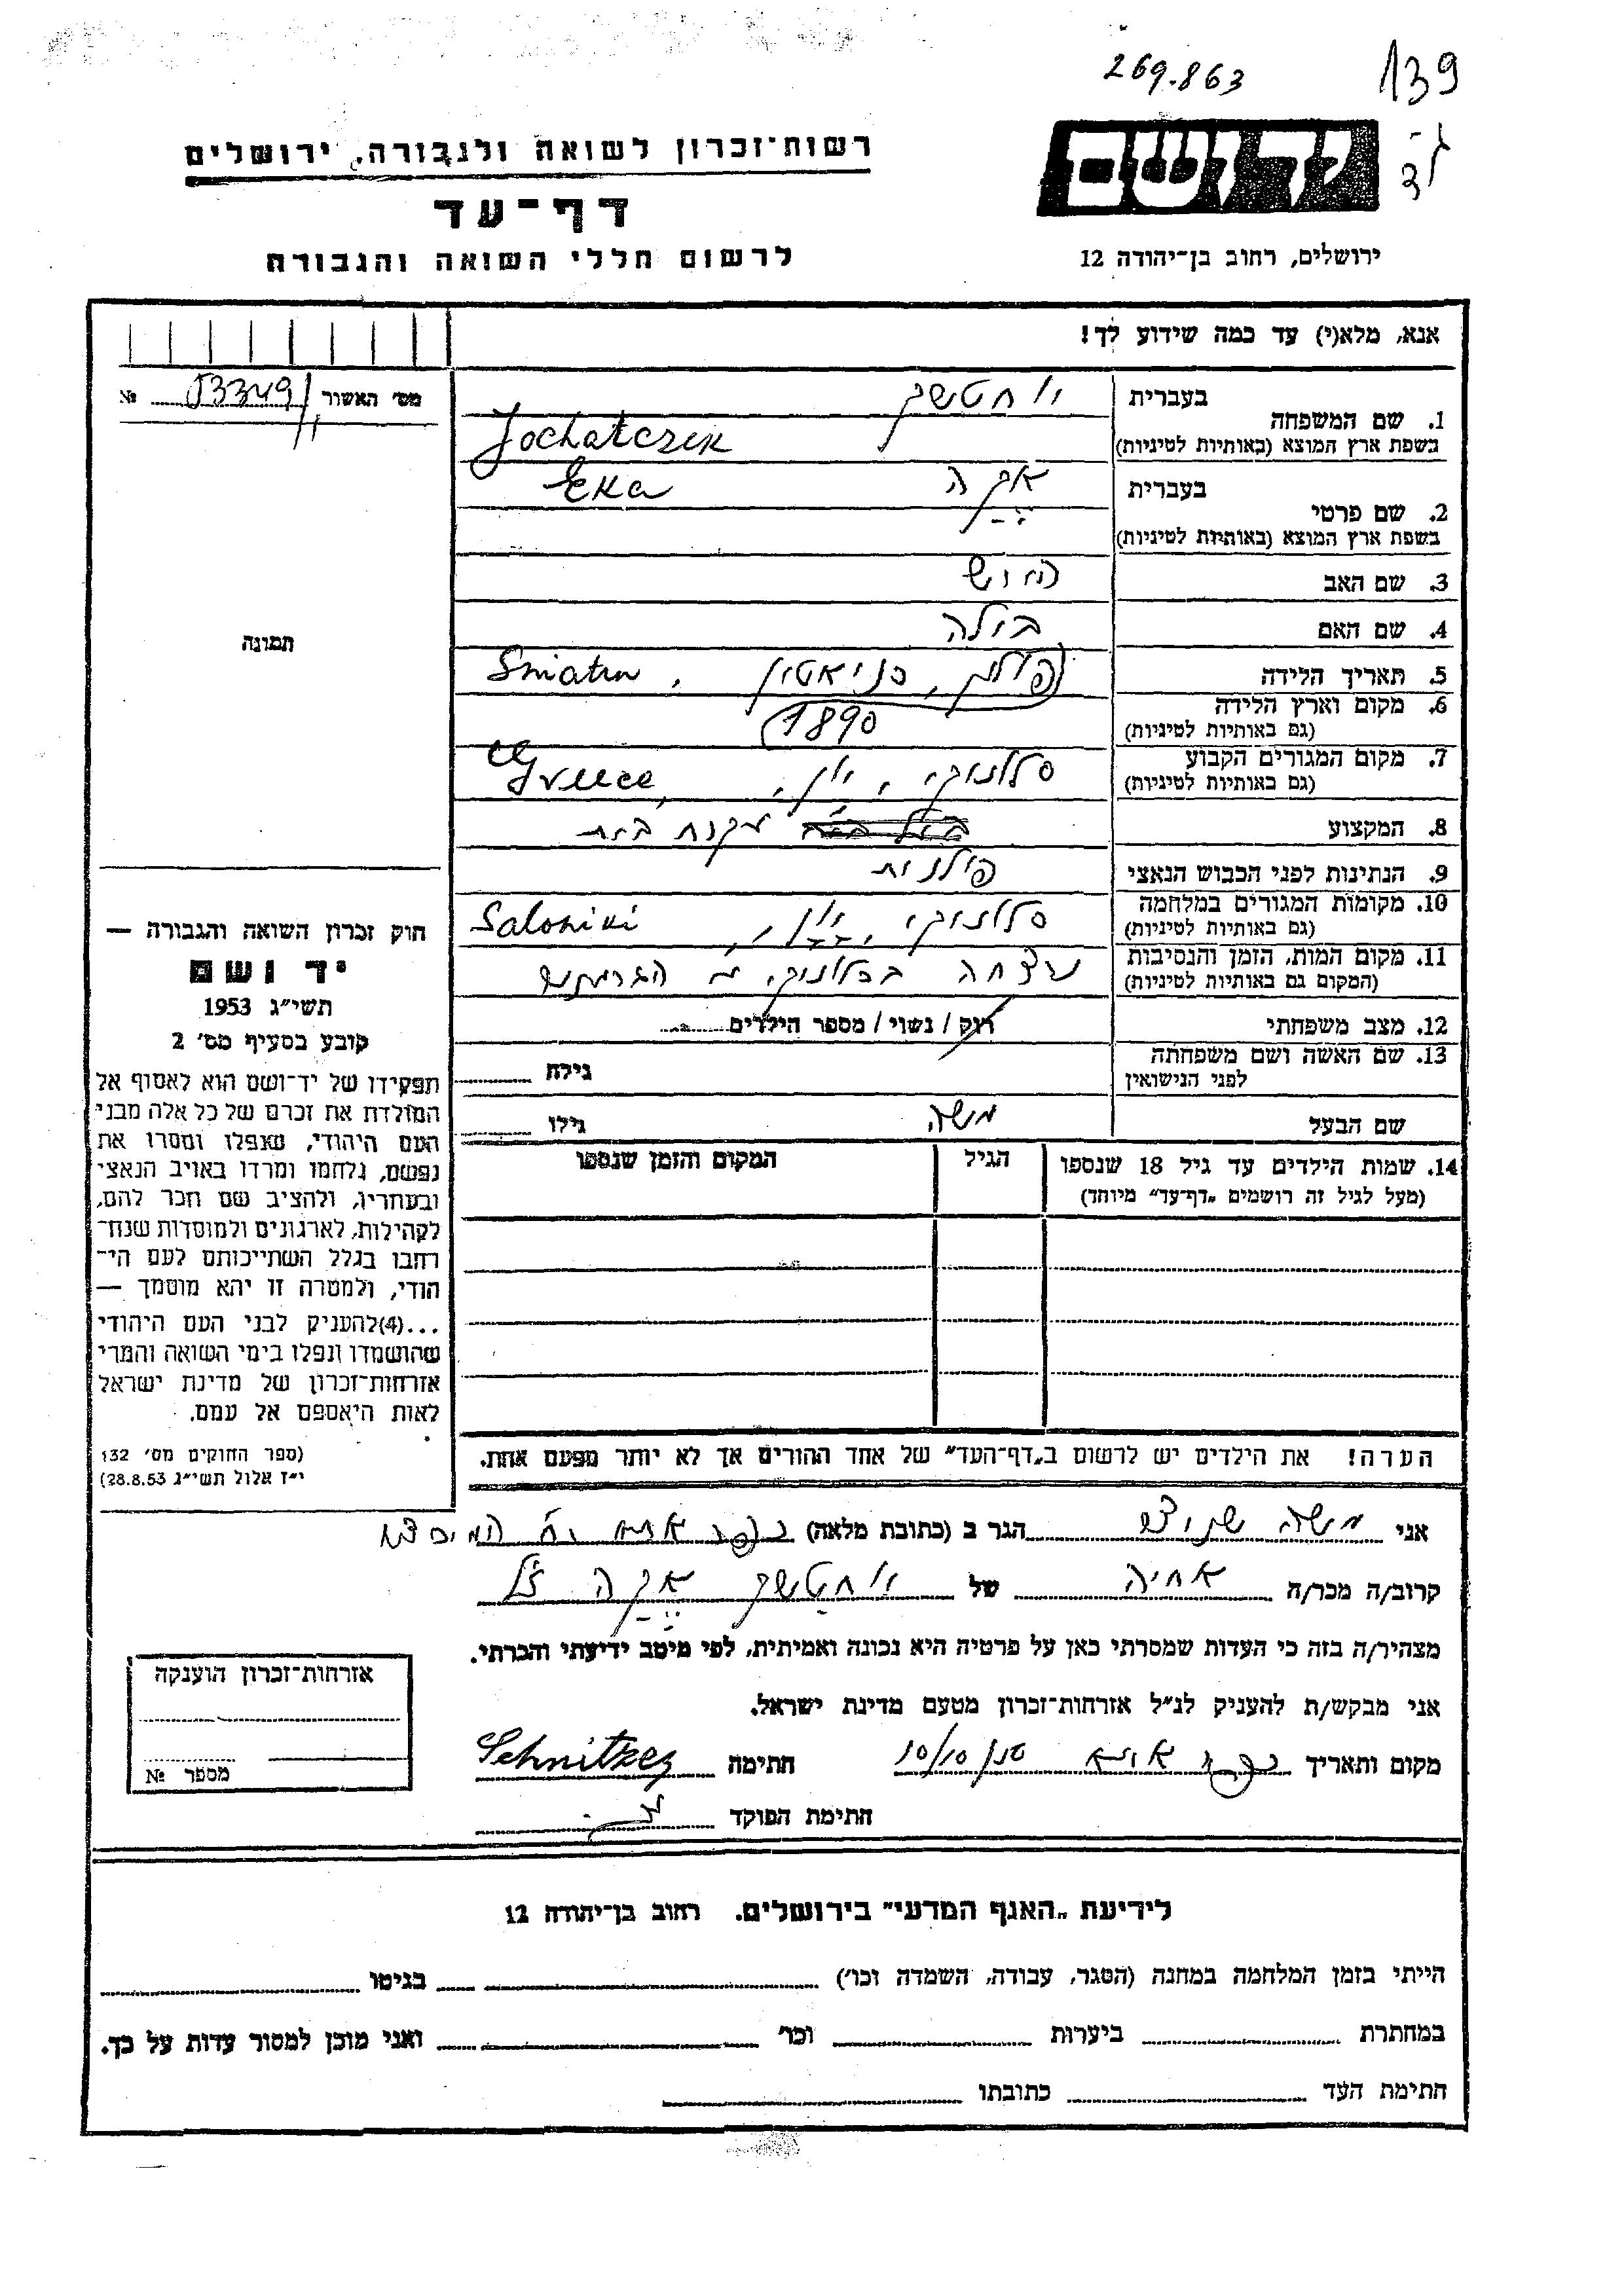 269.863
139
רשות־זכרון לשואה ולגבורה, ירושלים
יד ושם
דף־עד
לרשום חללי השואה והגבורה
ירושלים, רחוב בן־יהודה 12
אנא, מלא(י) עד כמה שידוע לך!
מס׳ האשור 53349 №
בעברית
1. שם המשפחה
בשפת ארץ המוצא (באותיות לטיניות)
יוחטשק
Jochatczek
בעברית
2. שם פרטי
בשפת ארץ המוצא (באותיות לטיניות)
אקה
Eka
3. שם האב
4. שם האם ביילה
5. תאריך הלידה
פולין, סניאטין, Sniatin
6. מקום וארץ הלידה
(גם באותיות לטיניות)
1890
7. מקום המגורים הקבוע
(גם באותיות לטיניות)
סלוניקי, יוון, Greece
8. המקצוע עקרת בית
9. הנתינות לפני הכבוש הנאצי פולנית
10. מקומות המגורים במלחמה
(גם באותיות לטיניות)
סלוניקי, יוון, Saloniki
11. מקום המות, הזמן והנסיבות
(המקום גם באותיות לטיניות)
נרצחה בסלוניקי ע״י הגרמנים
12. מצב משפחתי רווק / נשוי / מספר הילדים
13. שם האשה ושם משפחתה
לפני הנישואין
גילה
שם הבעל משה גילו
14. שמות הילדים עד גיל 18 שנספו
(מעל לגיל זה רושמים „דף־עד״ מיוחד)
הגיל
המקום והזמן שנספו
הערה! את הילדים יש לרשום ב„דף־העד״ של אחד ההורים אך לא יותר מפעם אחת.
תמונה
חוק זכרון השואה והגבורה —
יד ושם
תשי״ג 1953
קובע בסעיף מס׳ 2
תפקידו של יד־ושם הוא לאסוף אל
המולדת את זכרם של כל אלה מבני
העם היהודי, שנפלו ומסרו את
נפשם, נלחמו ומרדו באויב הנאצי
ובעוזריו, ולהציב שם וזכר להם,
לקהילות, לארגונים ולמוסדות שנח־
רבו בגלל השתייכותם לעם הי־
הודי, ולמטרה זו יהא מוסמך —
...(4)להעניק לבני העם היהודי
שהושמדו ונפלו בימי השואה והמרי
אזרחות־זכרון של מדינת ישראל
לאות היאספם אל עמם.
(ספר החוקים מס׳ 132
י״ז אלול תשי״ג 28.8.53)
אני משה שניצר הגר ב (כתובת מלאה) כפר אתא רח׳
קרוב/ה מכר/ה אחיה של יוחטשק אקה ז״ל
מצהיר/ה בזה כי העדות שמסרתי כאן על פרטיה היא נכונה ואמיתית, לפי מיטב ידיעתי והכרתי.
אני מבקש/ת להעניק לנ״ל אזרחות־זכרון מטעם מדינת ישראל.
מקום ותאריך כפר אתא 10/10 חתימה Schnitzer
חתימת הפוקד
אזרחות־זכרון הוענקה
מספר №
לידיעת „האגף המדעי״ בירושלים. רחוב בן־יהודה 12
הייתי בזמן המלחמה במחנה (הסגר, עבודה, השמדה וכו׳) בגיטו
במחתרת ביערות וכו׳ ואני מוכן למסור עדות על כך.
חתימת העד כתובתו